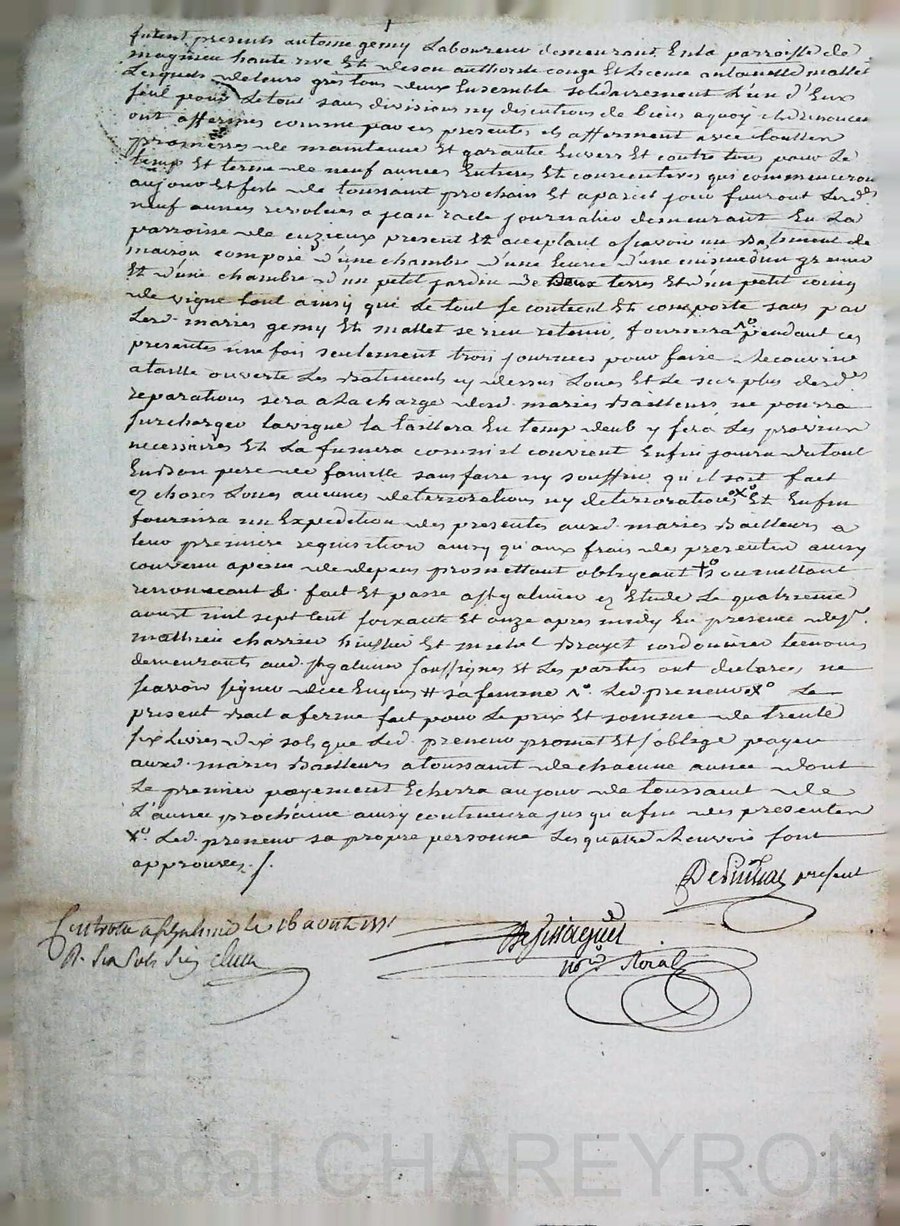 furent presents antoine gemy Laboureur demeurant En la parroisse de
magnieu haute rive Et de son authorité conge Et Licence antoinette mallet
Lesquels de leurs grés tous deux Ensemble solidairement L'un d'Eux
seul pour Le tout sans divisions ny discutions de biens a quoy ils Renoncent
ont affermés comme par ces presentes ils afferment avec
promesses de maintenue Et garantie Envers Et contre tous pour Le
temp Et terme de neuf années Entieres Et consecutives qui commenceront
au jour Et feste de toussaint prochain Et a pareil jour finiront Lesd.
neuf années revolues a jean racle journalier demeurant En La
parroisse de cuzieux present Et acceptant a sçavoir un Batiment de
maison composé d'une chambre d'une d'une d'un grenier
Et d'une chambre d'un petit jardin de Deux terres Et d'un petit coing
de vigne tout ainsy que Le tout se contient Et comporte sans par
Lesd. mariés gemy Et mallet se rien retenir, fournira pendant ces
presentes une fois seulement trois journées pour faire Recouvrir
a taille ouverte Les Batiments cy dessus Loués Et Le surplus desd.
reparations sera a La charge desd. mariés Bailleurs ne pourra
surcharger La vigne La taillera En temp deub y fera Les provins
necessaires Et La fumera comm'il convient Enfin jouira du tout
En Bon pere de famille sans faire ny souffrir qu'il soit fait
ez choses Loués aucunes deteriorations ny deteriorations x° Et Enfin
fournira un Expedition des presentes auxd. mariés Bailleurs a
Leur premiere requisition ainsy qu'aux frais des presentes ainsy
convenu a peine de depens promettant obligeant soumettant
renonceant &. fait Et passé a St galmier ez Etude Le quatrieme
aoust mil sept cent soixante Et onze apres midy En presence de sr.
mathieu charrier huissier Et michel Brayet cordonnier temoins
demeurants aud. St galmier soussignés Et Les parties ont declarés ne
sçavoir signer de ce Enquis # sa femme Led preneur x° Le
present Bail a ferme fait pour Le prix Et somme de trente
six Livres dix sols que Led. preneur promet Et s'oblige payer
auxd. mariés Bailleurs a toussaint de chacune année dont
Le premier payement Echerra au jour de toussaint de
L'année prochaine ainsy continuera jusqu'a fin des presentes
x° Led. preneur sa propre personne Les quatre Renvois sont
approuvés.
present
Controlé a St galmier le 16 aout 1771
R. six sols six
nore Roial